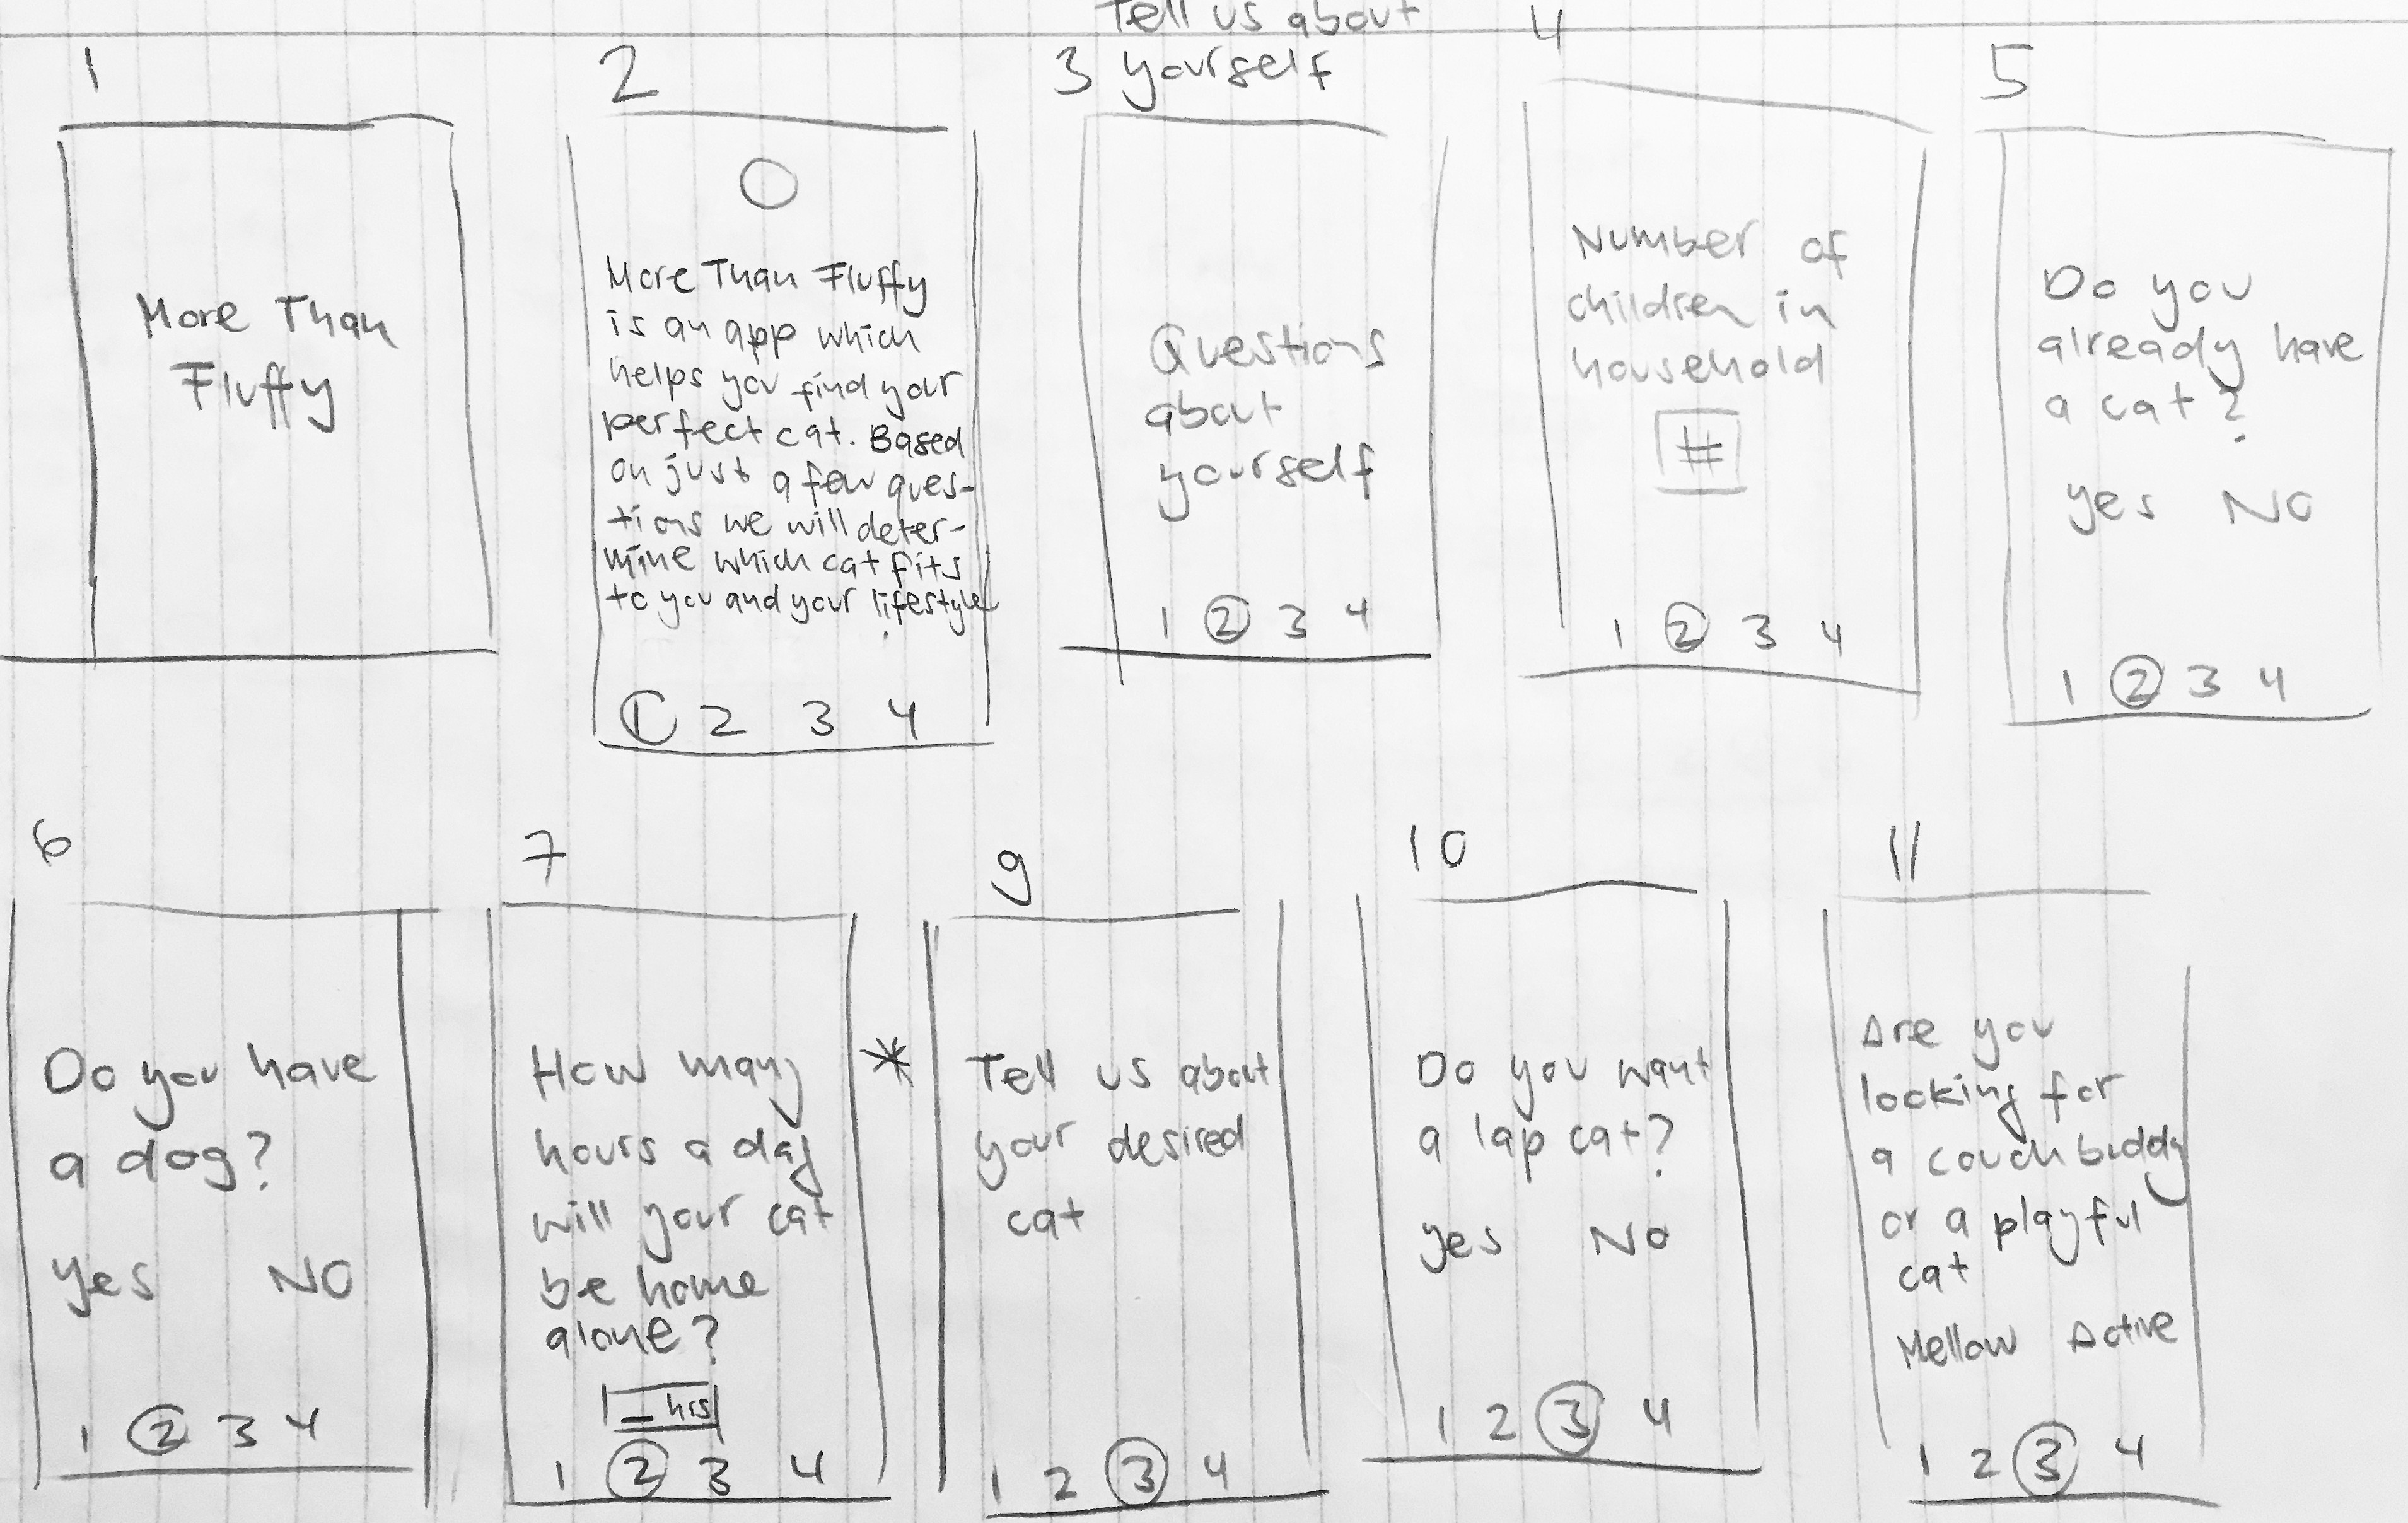 1
More Than
Fluffy
2
More Than Fluffy
is an app which
helps you find your
perfect cat. Based
on just a few ques-
tions we will deter-
mine which cat fits
to you and your lifestyle.
1 2 3 4
Tell us about
3 yourself
Questions
about
yourself
1 2 3 4
4
Number of
children in
household
#
1 2 3 4
5
Do you
already have
a cat?
yes NO
1 2 3 4
6
Do you have
a dog?
yes NO
1 2 3 4
7
How many
hours a day
will your cat
be home
alone?
_ hrs
1 2 3 4
*
9
Tell us about
your desired
cat
1 2 3 4
10
Do you want
a lap cat?
yes No
1 2 3 4
11
Are you
looking for
a couch buddy
or a playful
cat
Mellow Active
1 2 3 4